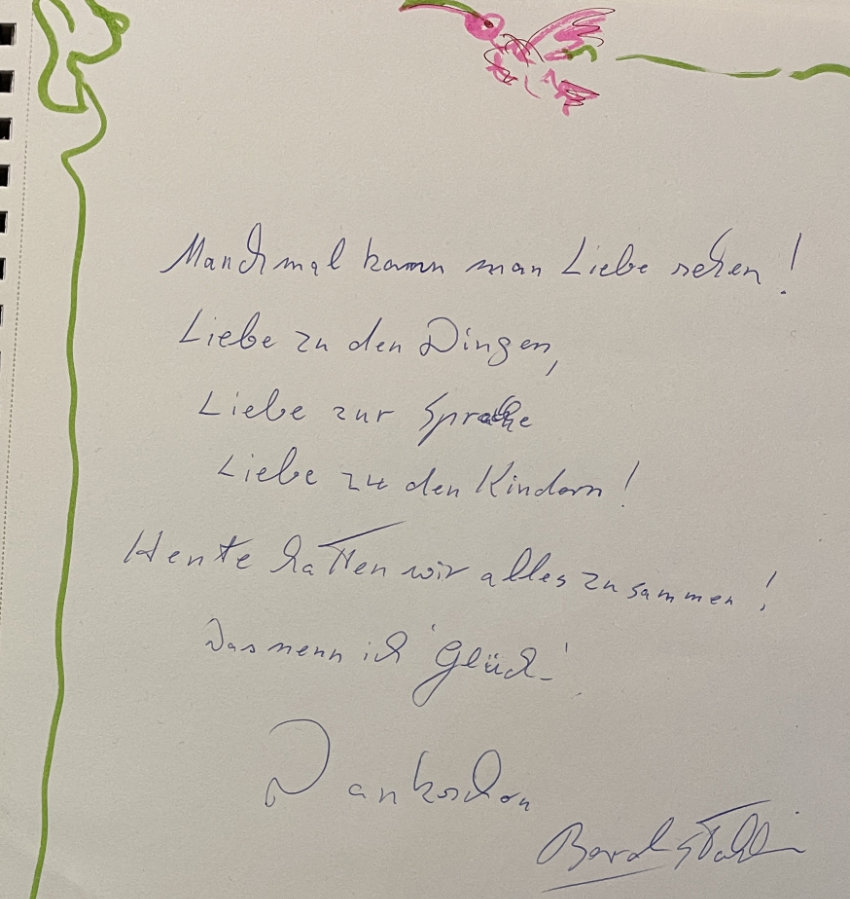 Manchmal kann man Liebe sehen!
Liebe zu den Dingen,
Liebe zur Sprache
Liebe zu den Kindern!
Heute hatten wir alles zusammen!
Das nenn ich 'Glück'
Dankeschön